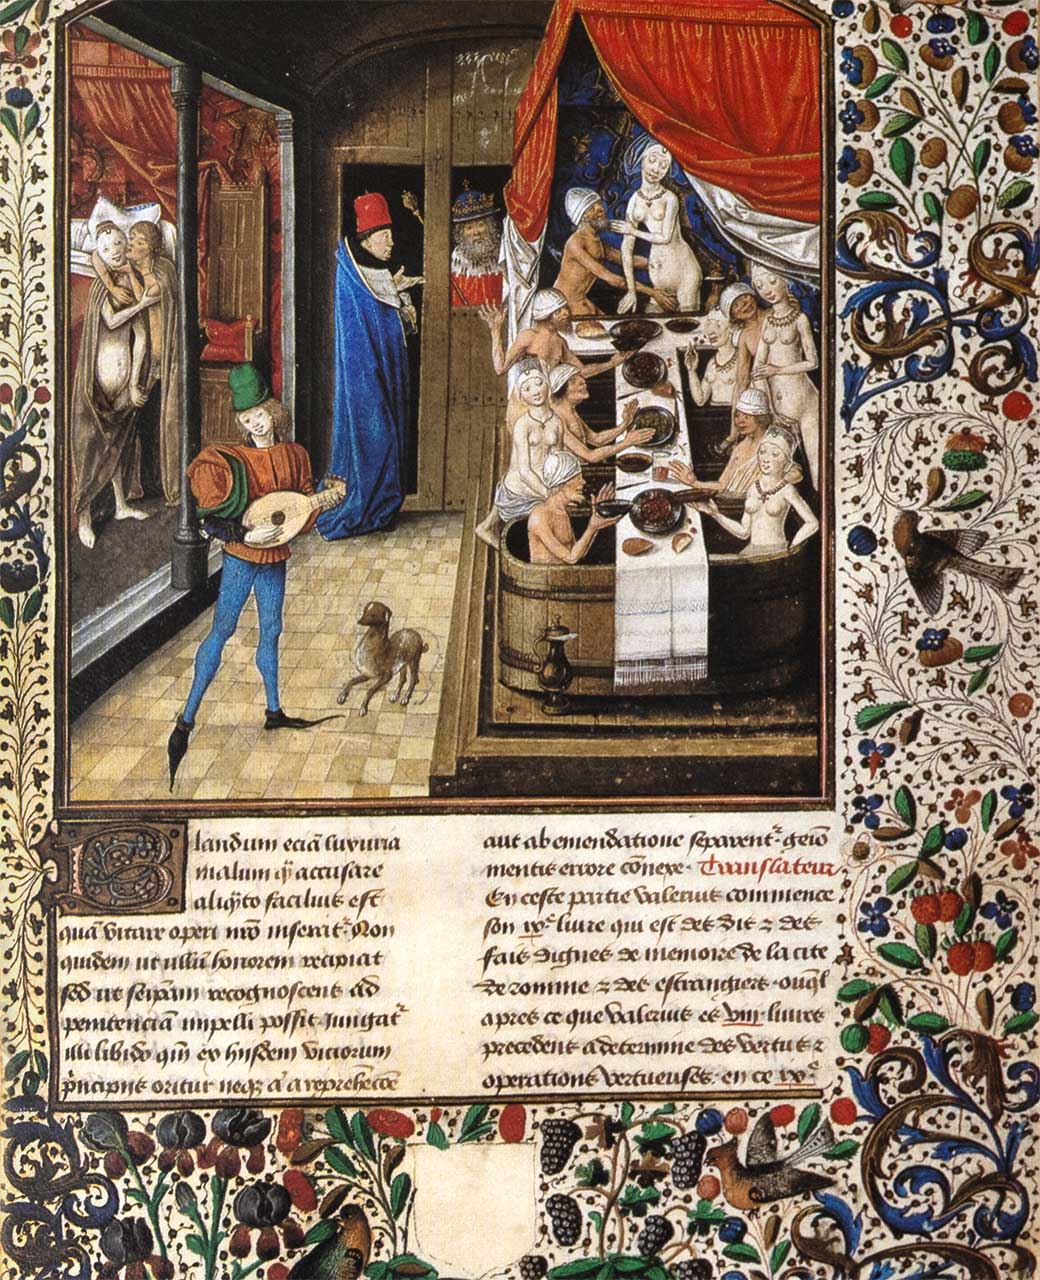 Blandum eciã luxuria
malum q̃ accusare
aliq̃to facilius est
quã vitare operi nr̃o inserat᷑. Non
quidem ut ullũ honorem recipiat
sed ut seip̃am recognoscens ad
penitenciã impelli possit. Jungat᷑
illi libido qm̃ ex hiisdem viciorum
p̃ncipiis oritur neqꝫ a a reprehẽcõe
aut ab emendatione separent᷑. geĩo
mentis errore cõnexe. Translateur
En ceste partie valerius commence
son ixᵉ liure qui est des dis ⁊ des
fais dignes de memoire de la cite
de romme ⁊ des estrangiers. ouql̃
apres ce que valerius es viii liures
precedens a determine des vertus ⁊
operations vertueuses. en ce ixᵉ